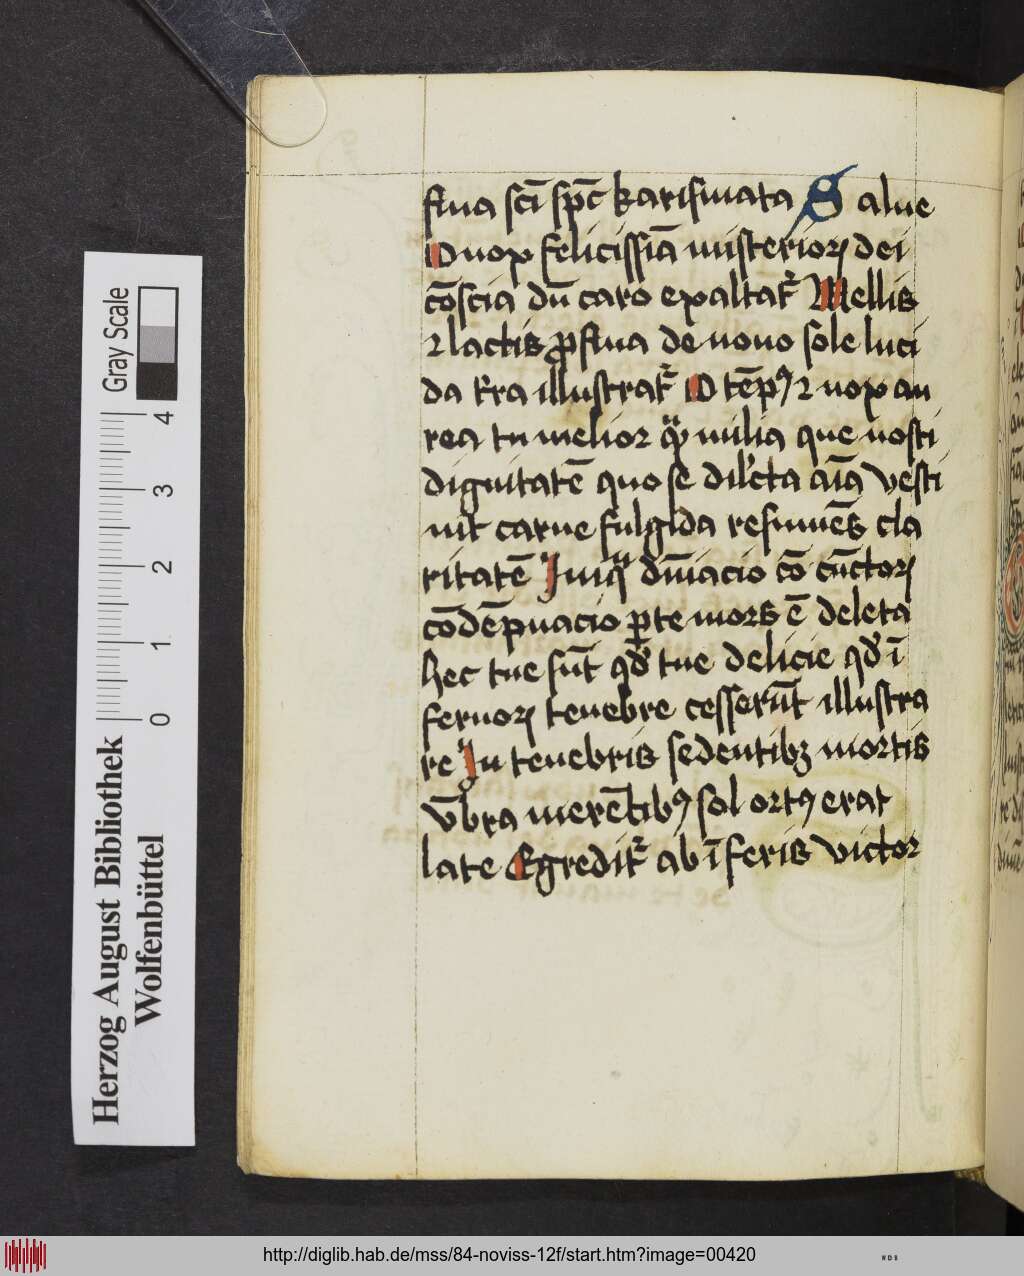 flua sc̄i sp̄c karismata Salue
O nox felicissīa misterioꝝ dei
cōscia dū caro exaltat᷑ Mellis
⁊ lactis ꝓflua de nouo sole luci
da t᷑ra illustrat᷑ O tēpꝰ ⁊ nox au
rea tu melior qͣ̄ milia que nosti
dignitatē quo se dil'cta aīa vesti
uit carne fulgida resumēs cla
ritatē Iniqͣ dn̄iacio cō cūctoꝝ
cōdēpnacio ꝑ te mors ē deleta
hec tue sūt qd̓ tue delicie qd̓ ī
fernoꝝ tenebre cesserūt illustra
re In tenebris sedentibꝫ mortis
vb̄ra merētibꝰ sol ortꝰ erat
late Egredit᷑ ab īferis victor
Herzog August Bibliothek
Wolfenbüttel
Gray Scale
0 1 2 3 4
http://diglib.hab.de/mss/84-noviss-12f/start.htm?image=00420